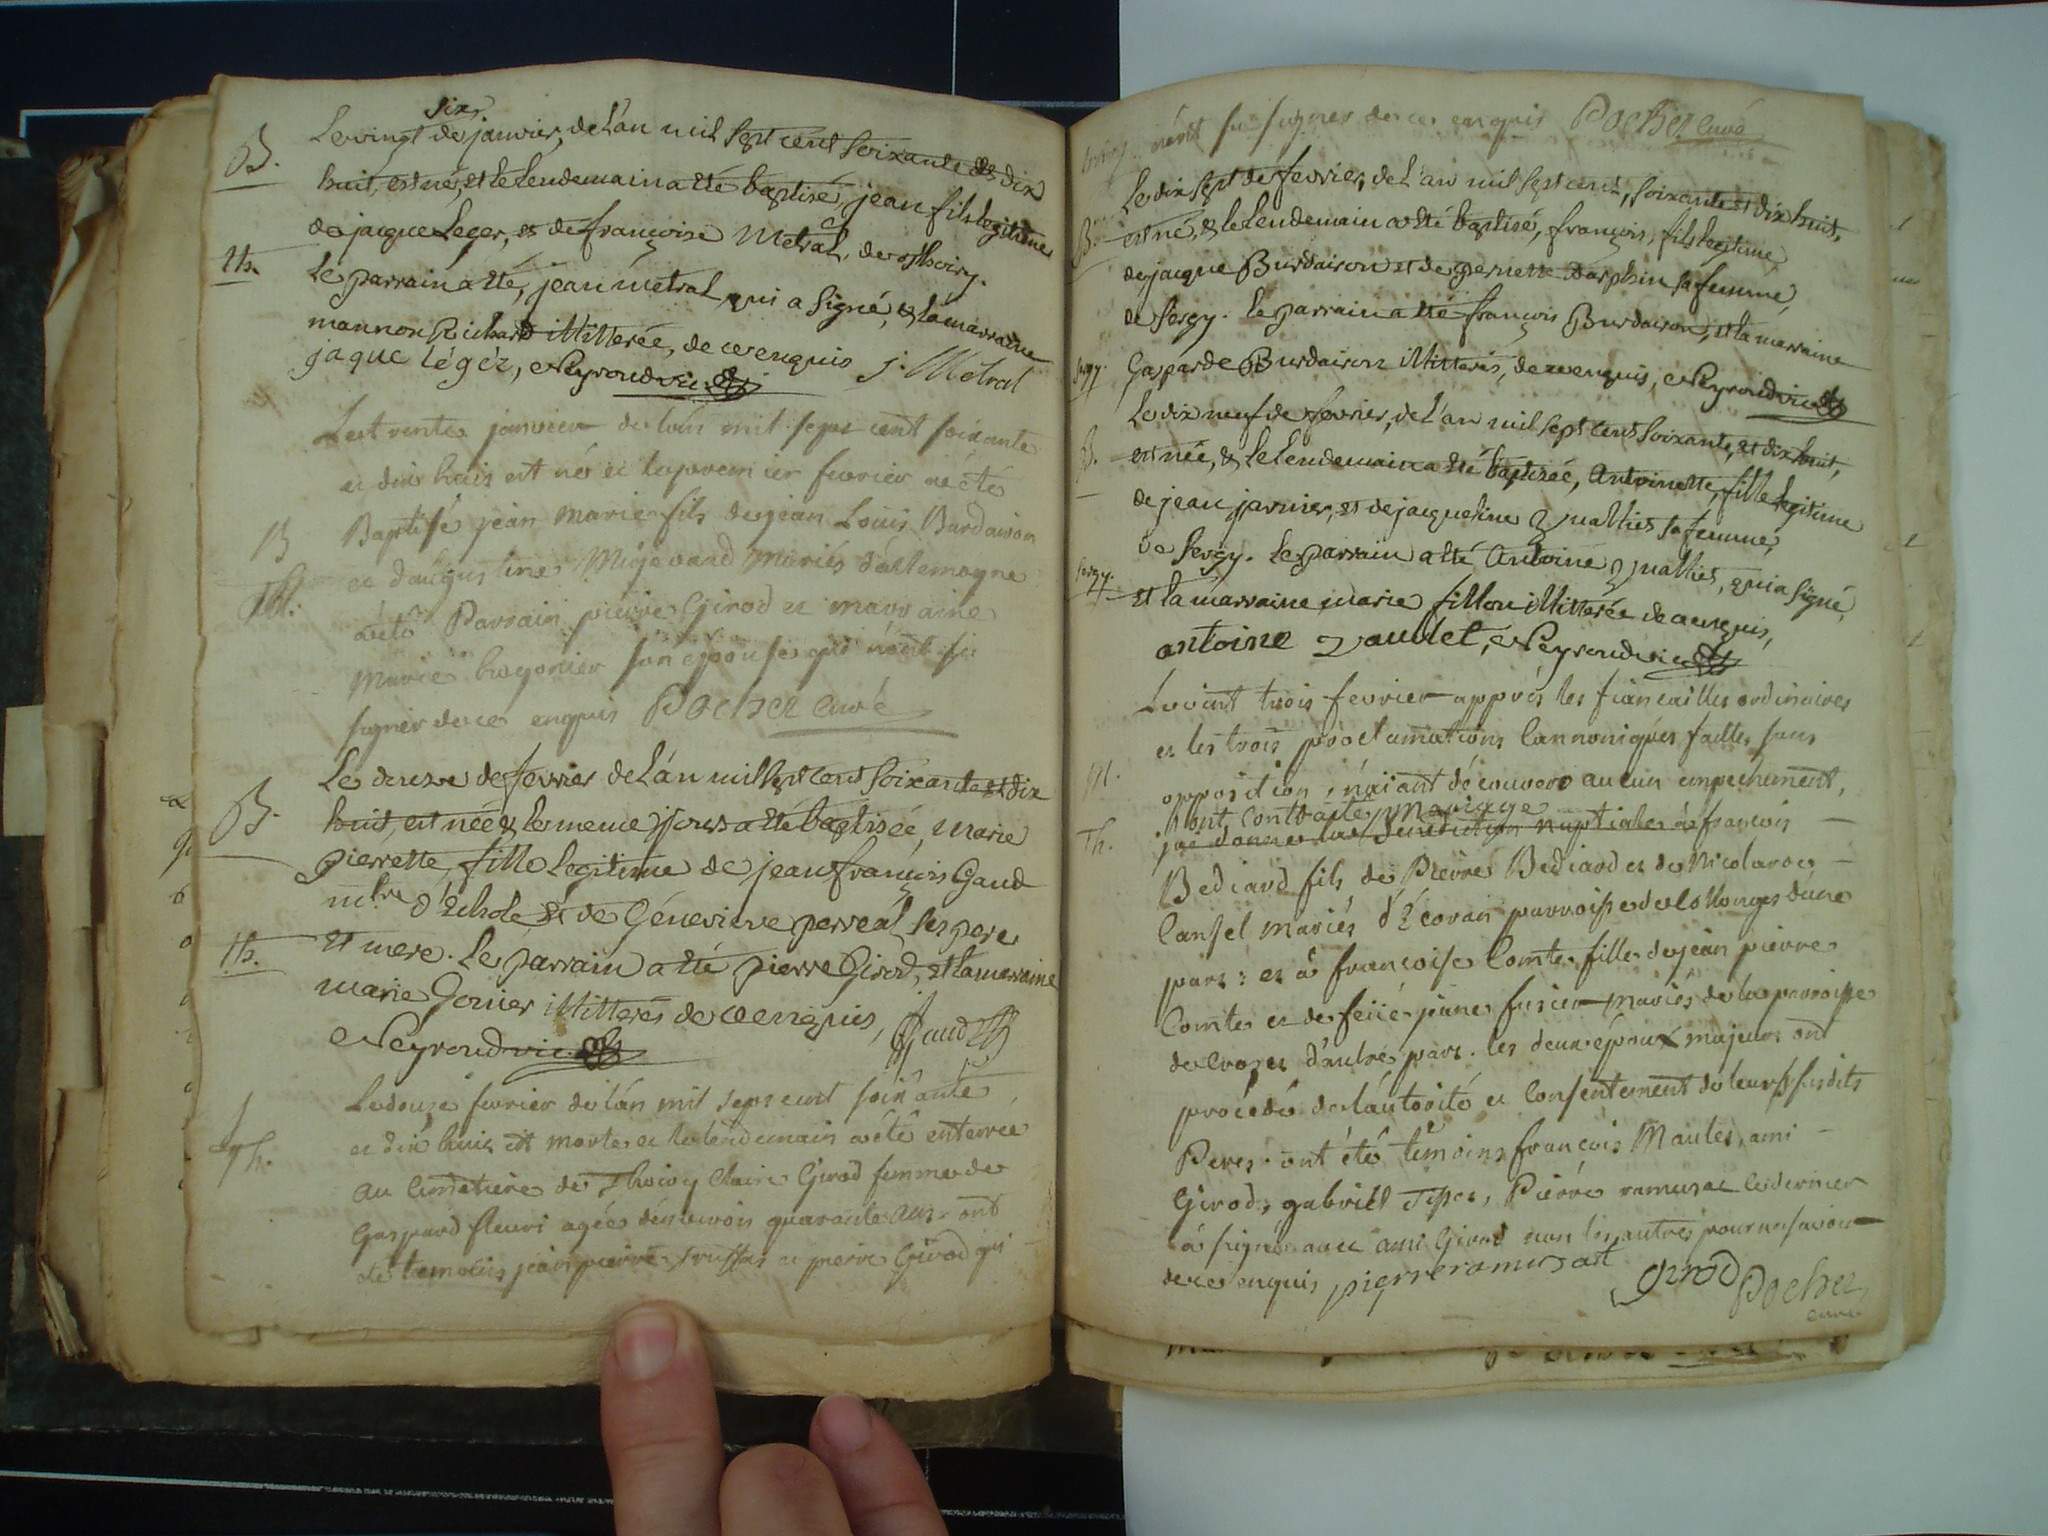 six
B. Le vingt de janvier, de L'an mil sept cent soixante et dix
huit, est né, et le lendemain a été baptisé, jean fils legitime
de jacque Leger, et de françoise Metral, de Thoiry.
Th. Le parrain a été, jean métral, qui a signé, et la marraine
mannon Richard illitterée, de ce enquis j. Metral
jaque légér, Neyroud vic.
Le trente janvier de lan mil sept cent soixante
et dix huit est né et le premier fevrier a été
B Baptisé jean Marie fils de jean Louis Burdairon
et d'augustine Mojevard mariés d'allemogne
Th. a été Parrain pierre Girod et marraine
Marie son épouse qui n'ont su
signer de ce enquis Pochet curé
B. Le douze de fevrier de L'an mil sept cent soixante et dix
huit, est née et le meme jour a été baptisée, Marie
pierrette, fille legitime de jean françois Gaud
mtre d'Echole et de Génevieve perreal ses pere
Th. et mere. Le parrain a été pierre Girod, et la marraine
marie Gonier illitterés de ce enquis, Gaud
Neyroud vic.
Le douze fevrier de lán mil sept cent soixante
Th. et dix huit est morte et le lendemain a été enterrée
au cimetiere de Thoiry Claire Girod femme de
Gaspard fleuri agée d'environ quarante ans. ont
été temoins jean pierre et pierre Girod qui
n'ont su signer de ce enquis Pochet curé
Le dix sept de fevrier, de L'an mil sept cent, soixante et dix huit,
B. est né, et le lendemain a été baptisé, françois, fils legitime,
de jacque Burdairon et de pernette Darphin sa femme,
de Sergy. Le parrain a été françois Burdairon, et la marraine
sergy. Gasparde Burdairon illitterés, de ce enquis, Neyroud vic
Le dix neuf de fevrier, de L'an mil sept cent soixante, et dix huit,
B. est née, et le lendemain a été baptisée, Antoinette, fille legitime
de jean jarnier, et de jacqueline Zuallet sa femme,
de Sergy. Le parrain a été Antoine Zuallet, qui a signé,
sergy. et la marraine marie fillon illitterée de ce enquis,
antoine Zaudet, Neyroud vic
Le vint trois fevrier apprés les fiancailles ordinaires
et les trois proclamations Cannoniques faittes sans
M. opposition, n'aiant découvert aucun empechement,
ont contracté Mariage
Th. jai donné la Benediction nuptiale à françois
Bediard fils de Pierre Bediard et de Nicolarde
Cansel mariés d'Ecoran parroisse de Collonges d'une
part: et à françoise Comte fille de jean pierre
Comte et de feüe jane fusier mariés de la parroisse
de Crozet d'autre part. les deux époux majeurs ont
procédé de láutorité et Consentement de leurs susdits
Peres. ont été témoins françois Maulet, ami
Girod, gabriel Pierre ramusat le dernier
a signé avec ami Girod non les autres pour ne savoir
de ce enquis pierre ramusat Girod Pochet
curé